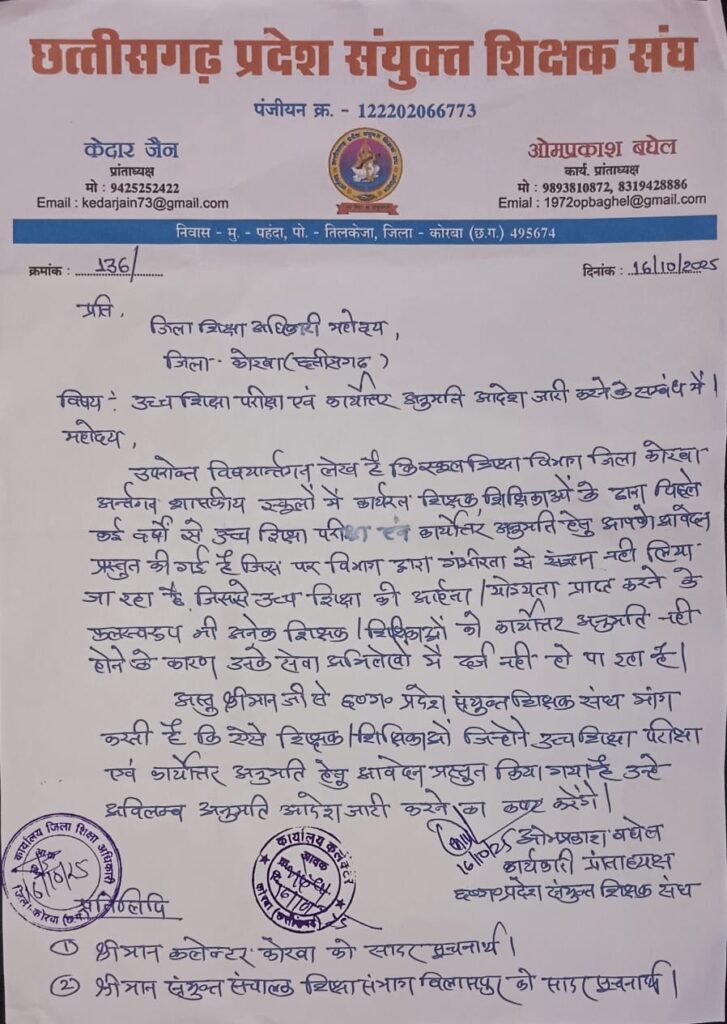 छत्तीसगढ़ प्रदेश संयुक्त शिक्षक संघ
पंजीयन क्र. - 122202066773
केदार जैन
प्रांताध्यक्ष
मो : 9425252422
Email : kedarjain73@gmail.com
ओमप्रकाश बघेल
कार्य. प्रांताध्यक्ष
मो : 9893810872, 8319428886
Emial : 1972opbaghel@gmail.com
निवास - मु. - पहंदा, पो. - तिलकेजा, जिला - कोरबा (छ.ग.) 495674
क्रमांक : 136/
दिनांक : 16/10/2025
प्रति,
जिला शिक्षा अधिकारी महोदय,
जिला - कोरबा (छत्तीसगढ़)
विषय : उच्च शिक्षा परीक्षा एवं कार्योत्तर अनुमति आदेश जारी करने के सम्बंध में।
महोदय,
उपरोक्त विषयान्तर्गत लेख है कि स्कूल शिक्षा विभाग जिला कोरबा
अर्न्तगत शासकीय स्कूलों में कार्यरत शिक्षक शिक्षिकाओं के द्वारा पिछले
कई वर्षों से उच्च शिक्षा परीक्षा एवं कार्योत्तर अनुमति हेतु आपको आवेदन
प्रस्तुत की गई है जिस पर विभाग द्वारा गंभीरता से संज्ञान नही लिया
जा रहा है, जिससे उच्च शिक्षा की अर्हता / योग्यता प्राप्त करने के
फलस्वरूप भी अनेक शिक्षक / शिक्षिकाओं को कार्योत्तर अनुमति नही
होने के कारण उनके सेवा अभिलेखों मे दर्ज नही हो पा रहा है।
अस्तु श्रीमान जी से छ०ग० प्रदेश संयुक्त शिक्षक संघ मांग
करती है कि ऐसे शिक्षक / शिक्षिकाओं जिन्होने उच्च शिक्षा परीक्षा
एवं कार्योत्तर अनुमति हेतु आवेदन प्रस्तुत किया गया है उन्हे
अविलम्ब अनुमति आदेश जारी करने का कष्ट करेंगे।
16/10/25
ओमप्रकाश बघेल
कार्यकारी प्रांताध्यक्ष
छ०ग० प्रदेश संयुक्त शिक्षक संघ
कार्यालय जिला शिक्षा अधिकारी
16/10/25
जिला-कोरबा (छ.ग.)
कार्यालय कलेक्टर
आवक
कोरबा (छत्तीसगढ़)
प्रतिलिपि
① श्रीमान कलेक्टर कोरबा को सादर सूचनार्थ।
② श्रीमान संयुक्त संचालक शिक्षा संभाग बिलासपुर को सादर सूचनार्थ।